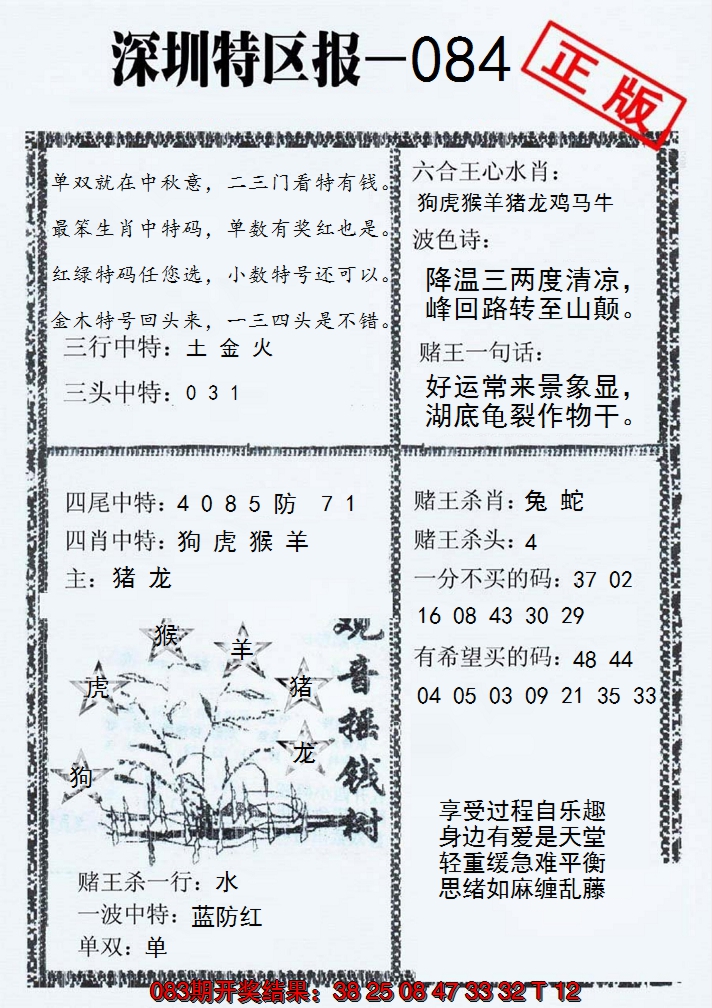 深圳特区报-084
正版
单双就在中秋意，二三门看特有钱。
最笨生肖中特码，单数有奖红也是。
红绿特码任您选，小数特号还可以。
金木特号回头来，一三四头是不错。
三行中特：土 金 火
三头中特：0 3 1
六合王心水肖：
狗虎猴羊猪龙鸡马牛
波色诗：
降温三两度清凉，
峰回路转至山颠。
赌王一句话：
好运常来景象显，
湖底龟裂作物干。
四尾中特：4 0 8 5 防 7 1
四肖中特：狗 虎 猴 羊
主：猪 龙
观音摇钱树
猴
羊
虎
猪
龙
狗
赌王杀一行：水
一波中特：蓝防红
单双：单
赌王杀肖：兔 蛇
赌王杀头：4
一分不买的码：37 02
16 08 43 30 29
有希望买的码：48 44
04 05 03 09 21 35 33
享受过程自乐趣
身边有爱是天堂
轻重缓急难平衡
思绪如麻缠乱藤
083期开奖结果：38 25 08 47 33 32 T 12